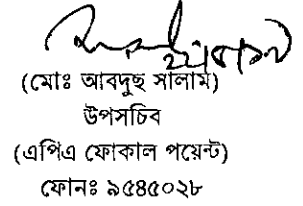 (মোঃ আবদুছ সালাম)
উপসচিব
(এপিএ ফোকাল পয়েন্ট)
ফোনঃ ৯৫৪৫০২৮